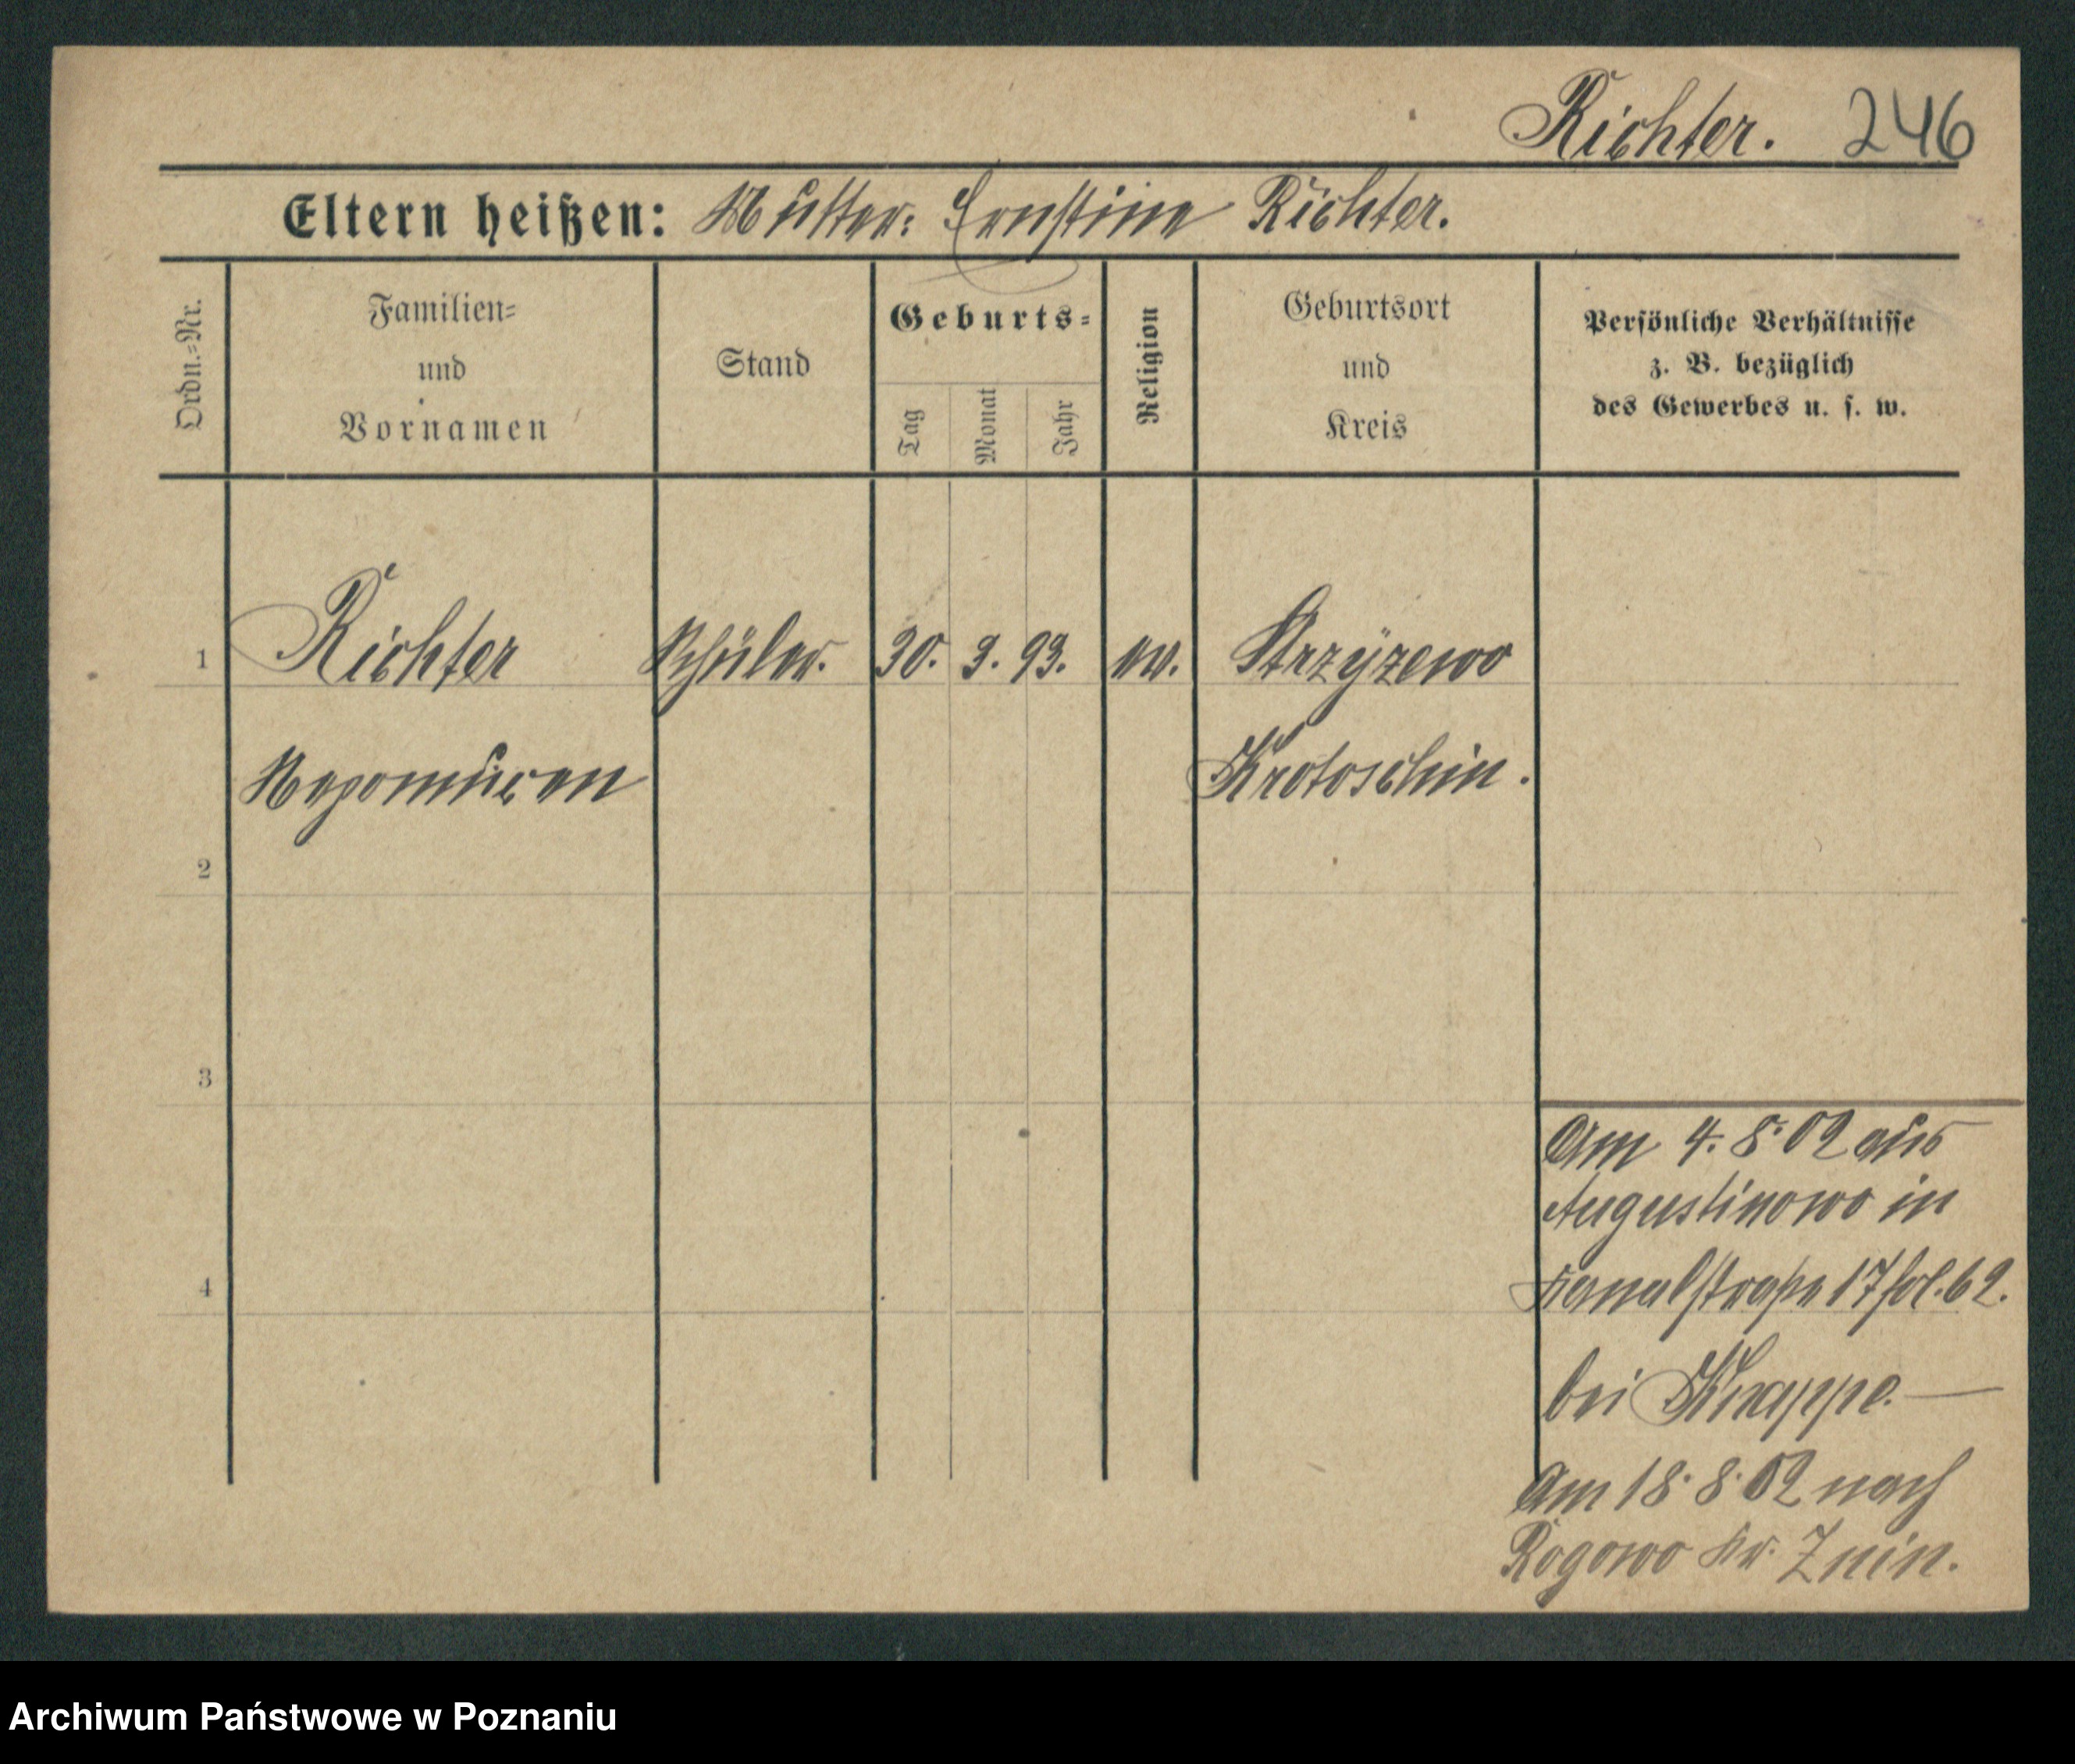 Richter. 246
Eltern heißen: Mutter: Ernstine Richter.
Ordn.=Nr.
Familien=
und
Vornamen
Stand
Geburts=
Tag
Monat
Jahr
Religion
Geburtsort
und
Kreis
Persönliche Verhältnisse
z. B. bezüglich
des Gewerbes u. s. w.
1 Richter Schüler. 30. 3. 93. ev. Strzyzewo
Nepomucen Krotoschin.
2
3
4
Am 4. 8. 02 aus
Augustinowo in
Kanalstraße 17 fol. 62.
bei Knappe. —
Am 18. 8. 02 nach
Rogowo Kr. Znin.
Archiwum Państwowe w Poznaniu